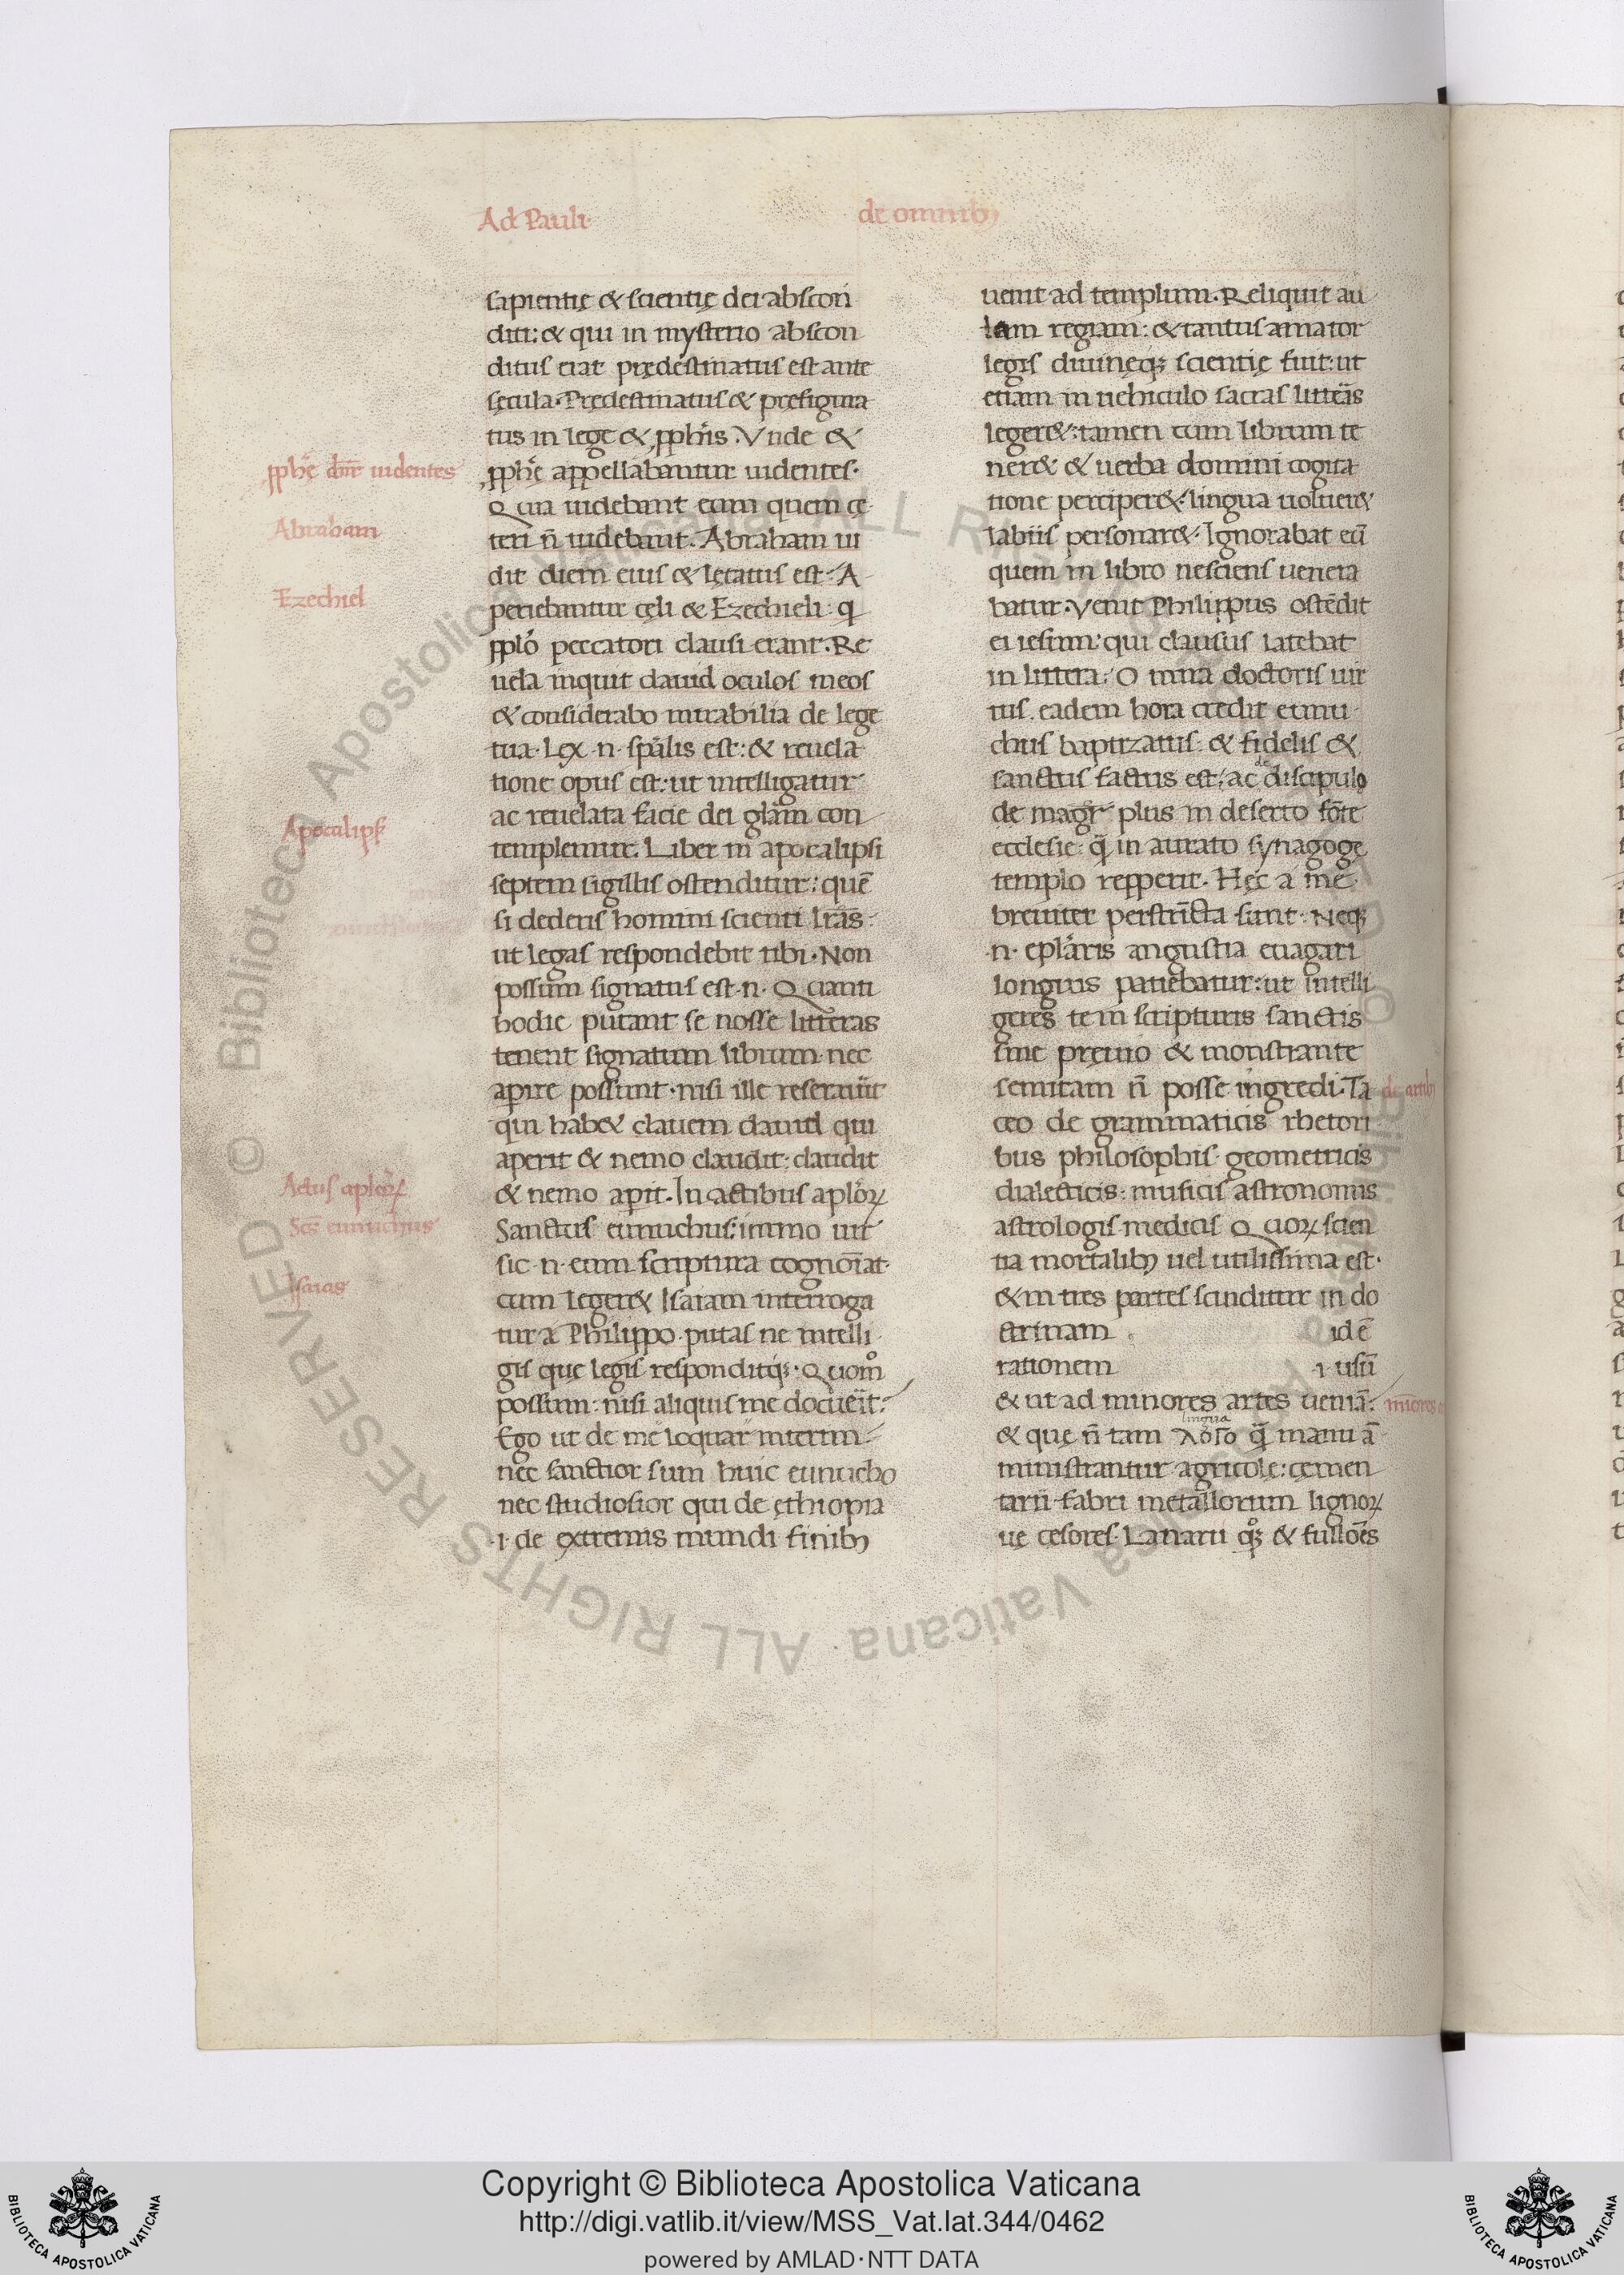 Ad Pauli·
de omnibꝰ
sapientię & scientię dei abscon
diti: & qui in mysterio abscon
ditus erat prędestinatus est ante
sęcula· Prędestinatus & pręfigura
tus in lege & ꝓphis. Vnde &
ꝓphę appellabantur uidentes·
Quia uidebant eum quem cę
teri n̄ uidebant. Abraham ui
dit diem eius & lętatus est· A
periebantur cęli & Ezechieli: q
pplo peccatori clausi erant. Re
uela inquit dauid oculos meos
& considerabo mirabilia de lege
tua· Lex ·n· spalis est: & reuela
tione opus est: ut intelligatur
ac reuelata facie dei glam con
templemur. Liber in apocalipsi
septem sigillis ostenditur: quē
si dederis homini scienti lras
ut legas respondebit tibi· Non
possum signatus est ·n· Quanti
hodie putant se nosse litteras
tenent signatum librum nec
aprire possunt· nisi ille reserauīt
qui hab& clauem dauid qui
aperit & nemo claudit: claudit
& nemo aprit. In actibus aploꝝ
Sanctus eunuchus: immo uir
sic ·n· eum scriptura cognoīat·
cum leger& Isaiam interroga
tur a Philippo· putas ne intelli
gis que legis responditq;· Quomo
possum: nisi aliquis me docueīt:
Ego ut de me loquar interim
nec sanctior sum huic eunucho
nec studiosior qui de ęthiopia
·i· de extremis mundi finibꝰ
ꝓphę dnr uidentes
Abraham
Ezechiel
Apocalips
Actus aploꝝ
Scs eunuchus
Isaias
uenit ad templum· Reliquit au
lam regiam: & tantus amator
legis diuinęq; scientię fuit: ut
etiam in uehiculo sacras litteras
leger&: tamen cum librum te
ner& & uerba domini cogita
tione perciper&: lingua uoluer&
labiis personar&· Ignorabat eū
quem in libro nesciens uenera
batur· Venit Philippus ostēdit
ei iesum: qui clausus latebat
in littera: O mira doctoris uir
tus. eadem hora credit eunu
chus baptizatus: & fidelis &
sanctus factus est: ac de discipulo
de magr plus in deserto fōte
ecclesie: q̄ in aurato synagogę
templo repperit· Hęc a me
breuiter perstrīcta sunt: Neq;
·n· eplaris angustia euagari
longius patiebatur: ut intelli
geres te in scripturis sanctis
sine pręuio & monstrante
semitam n̄ posse ingredi· Ta
ceo de grammaticis rhetori
bus philosophis geometricis
dialecticis: musicis astronomis
astrologis medicis Quoꝝ scien
tia mortalibꝰ uel utilissima est·
& in tres partes scinditur in do
ctrinam idē
rationem ·i· usū
& ut ad minores artes ueniā:
& quę n̄ tam λόγο lingua q̄ manu ā
ministrantur agricolę: cęmen
tarii fabri metallorum lignoꝝ
ue cesores Lanarii q̊q; & fullōēs
de artibꝰ